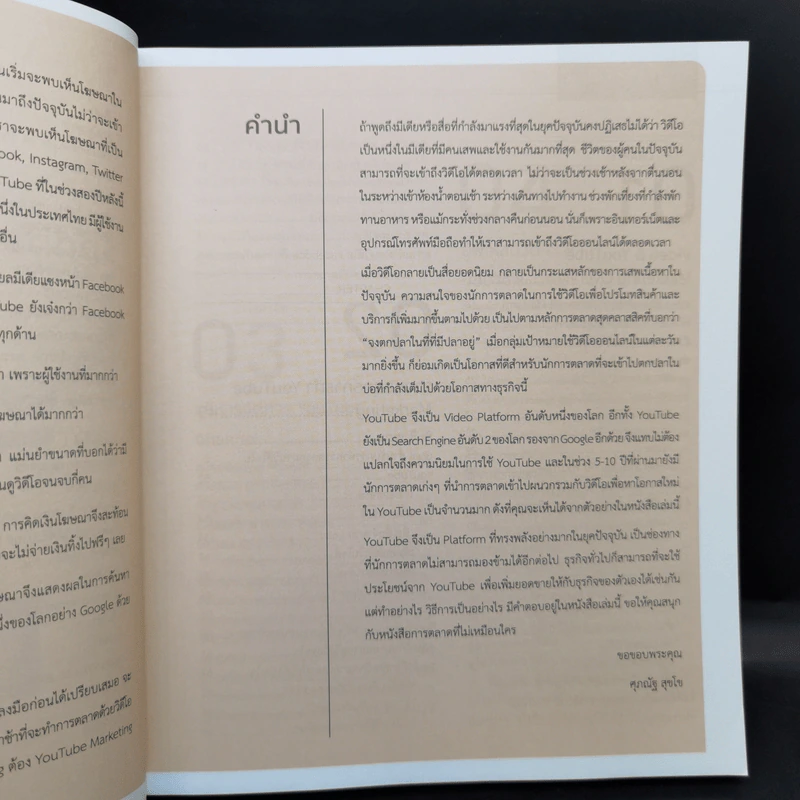 นเริ่มจะพบเห็นโฆษณาใน
นมาถึงปัจจุบันไม่ว่าจะเข้า
ราจะพบเห็นโฆษณาที่เป็น
ook, Instagram, Twitter
Tube ที่ในช่วงสองปีหลังนี้
นึ่งในประเทศไทย มีผู้ใช้งาน
อื่น
ยลมีเดียแซงหน้า Facebook
ube ยังเจ๋งกว่า Facebook
ทุกด้าน
า เพราะผู้ใช้งานที่มากกว่า
ฆษณาได้มากกว่า
แม่นยำขนาดที่บอกได้ว่ามี
นดูวิดีโอจนจบกี่คน
การคิดเงินโฆษณาจึงสะท้อน
จะไม่จ่ายเงินทิ้งไปฟรีๆ เลย
ษณาจึงแสดงผลในการค้นหา
นึ่งของโลกอย่าง Google ด้วย
ลงมือก่อนได้เปรียบเสมอ จะ
าช้าที่จะทำการตลาดด้วยวิดีโอ
g ต้อง YouTube Marketing
คำนำ
ถ้าพูดถึงมีเดียหรือสื่อที่กำลังมาแรงที่สุดในยุคปัจจุบันคงปฏิเสธไม่ได้ว่า วิดีโอ
เป็นหนึ่งในมีเดียที่มีคนเสพและใช้งานกันมากที่สุด ชีวิตของผู้คนในปัจจุบัน
สามารถที่จะเข้าถึงวิดีโอได้ตลอดเวลา ไม่ว่าจะเป็นช่วงเช้าหลังจากตื่นนอน
ในระหว่างเข้าห้องน้ำตอนเช้า ระหว่างเดินทางไปทำงาน ช่วงพักเที่ยงที่กำลังพัก
ทานอาหาร หรือแม้กระทั่งช่วงกลางคืนก่อนนอน นั่นก็เพราะอินเทอร์เน็ตและ
อุปกรณ์โทรศัพท์มือถือทำให้เราสามารถเข้าถึงวิดีโอออนไลน์ได้ตลอดเวลา
เมื่อวิดีโอกลายเป็นสื่อยอดนิยม กลายเป็นกระแสหลักของการเสพเนื้อหาใน
ปัจจุบัน ความสนใจของนักการตลาดในการใช้วิดีโอเพื่อโปรโมทสินค้าและ
บริการก็เพิ่มมากขึ้นตามไปด้วย เป็นไปตามหลักการตลาดสุดคลาสสิคที่บอกว่า
“จงตกปลาในที่ที่มีปลาอยู่” เมื่อกลุ่มเป้าหมายใช้วิดีโอออนไลน์ในแต่ละวัน
มากยิ่งขึ้น ก็ย่อมเกิดเป็นโอกาสที่ดีสำหรับนักการตลาดที่จะเข้าไปตกปลาใน
บ่อที่กำลังเต็มไปด้วยโอกาสทางธุรกิจนี้
YouTube จึงเป็น Video Platform อันดับหนึ่งของโลก อีกทั้ง YouTube
ยังเป็น Search Engine อันดับ 2 ของโลก รองจาก Google อีกด้วย จึงแทบไม่ต้อง
แปลกใจถึงความนิยมในการใช้ YouTube และในช่วง 5-10 ปีที่ผ่านมายังมี
นักการตลาดเก่งๆ ที่นำการตลาดเข้าไปผนวกรวมกับวิดีโอเพื่อหาโอกาสใหม่
ใน YouTube เป็นจำนวนมาก ดังที่คุณจะเห็นได้จากตัวอย่างในหนังสือเล่มนี้
YouTube จึงเป็น Platform ที่ทรงพลังอย่างมากในยุคปัจจุบัน เป็นช่องทาง
ที่นักการตลาดไม่สามารถมองข้ามได้อีกต่อไป ธุรกิจทั่วไปก็สามารถที่จะใช้
ประโยชน์จาก YouTube เพื่อเพิ่มยอดขายให้กับธุรกิจของตัวเองได้เช่นกัน
แต่ทำอย่างไร วิธีการเป็นอย่างไร มีคำตอบอยู่ในหนังสือเล่มนี้ ขอให้คุณสนุก
กับหนังสือการตลาดที่ไม่เหมือนใคร
ขอขอบพระคุณ
ศุภณัฐ สุขโข